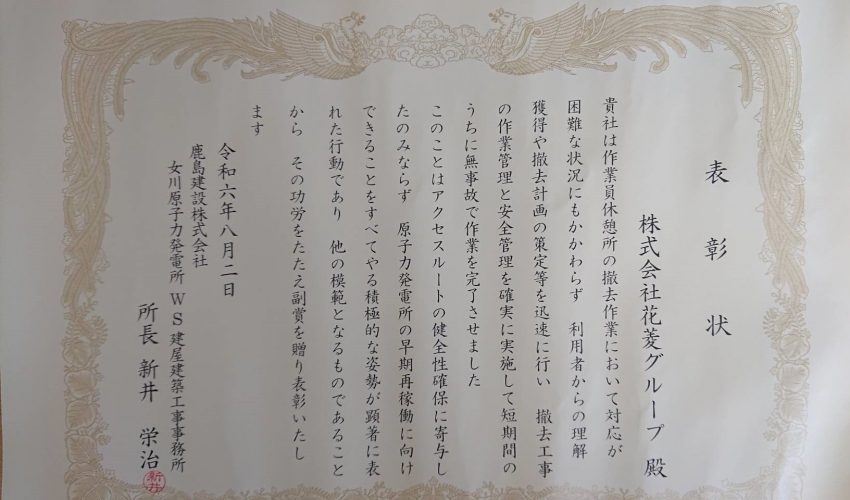 表彰状
株式会社花菱グループ 殿
貴社は作業員休憩所の撤去作業において対応が
困難な状況にもかかわらず 利用者からの理解
獲得や撤去計画の策定等を迅速に行い 撤去工事
の作業管理と安全管理を確実に実施して短期間の
うちに無事故で作業を完了させました
このことはアクセスルートの健全性確保に寄与し
たのみならず 原子力発電所の早期再稼働に向け
できることをすべてやる積極的な姿勢が顕著に表
れた行動であり 他の模範となるものであること
から その功労をたたえ副賞を贈り表彰いたし
ます
令和六年八月二日
鹿島建設株式会社
女川原子力発電所 WS建屋建築工事事務所
所長 新井 栄治
新井